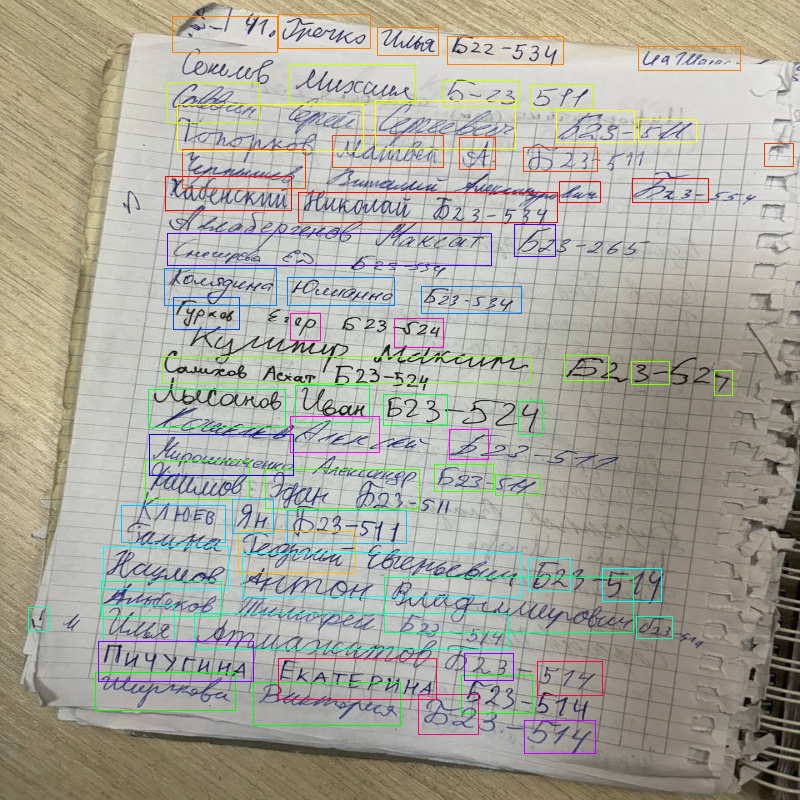 41. Гречко Илья Б22-534
Соколов Михаил Б-23 511
Савин Сергей Сергеевич Б23-511
Топорков Матвей А. Б23-511
Чернышев Виталий Александрович Б23-554
Хабенский Николай Б23-534
Аллабергенов Максат Б23-265
Снегирева ЕД Б23-534
Колядина Юлианна Б23-534
Гурков Егор Б23-524
Кушнир Максим Б23-524
Салихов Асхат Б23-524
Лысанов Иван Б23-524
Алексей Б23-511
Мирошниченко Александр Б23-511
Каимов Эдан Б23-511
Клюев Ян Б23-511
Георгий Евгеньевич Б23-514
Наумов Антон Владимирович Б23-514
Тимофей Б23-514
Илья Атмажитов Б23-514
Пичугина Екатерина Б23-514
Ширяева Виктория Б23-514